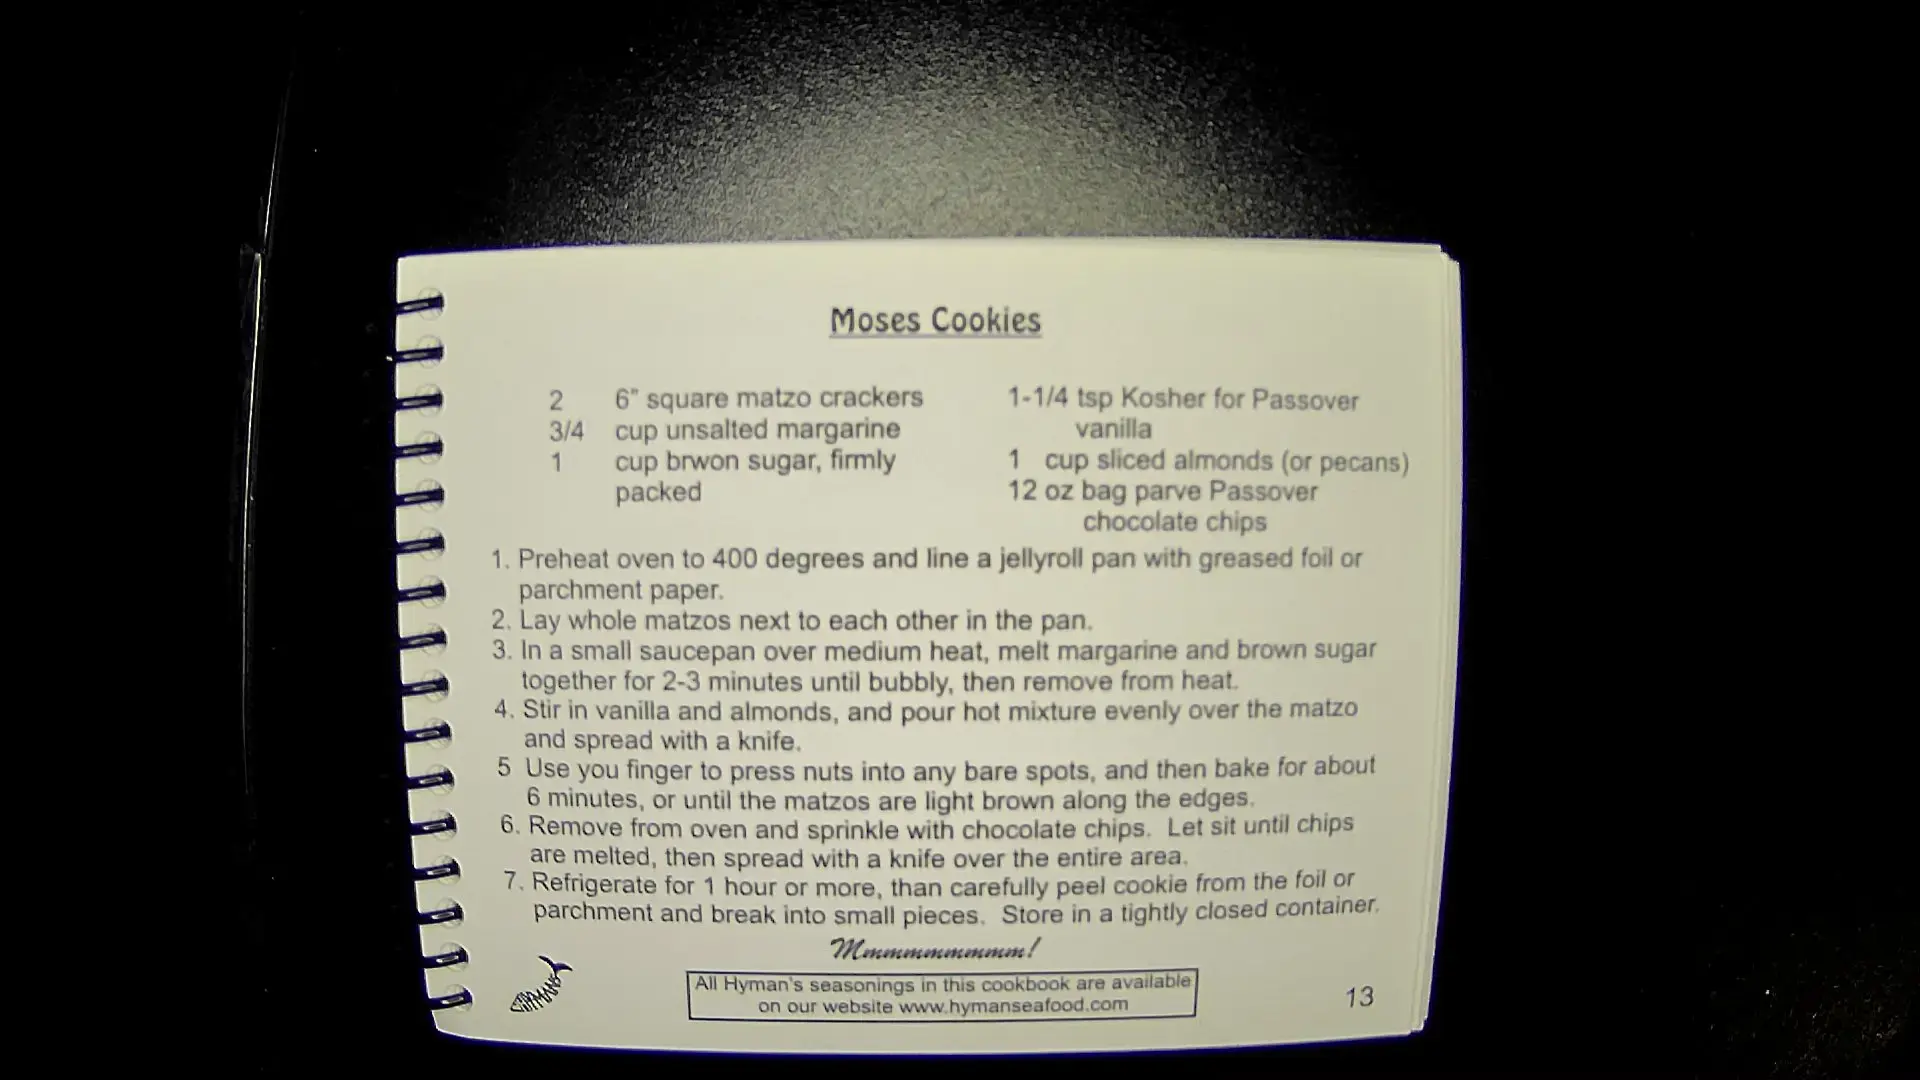 Moses Cookies
2 6" square matzo crackers
3/4 cup unsalted margarine
1 cup brwon sugar, firmly
packed
1-1/4 tsp Kosher for Passover
vanilla
1 cup sliced almonds (or pecans)
12 oz bag parve Passover
chocolate chips
1. Preheat oven to 400 degrees and line a jellyroll pan with greased foil or
parchment paper.
2. Lay whole matzos next to each other in the pan.
3. In a small saucepan over medium heat, melt margarine and brown sugar
together for 2-3 minutes until bubbly, then remove from heat.
4. Stir in vanilla and almonds, and pour hot mixture evenly over the matzo
and spread with a knife.
5 Use you finger to press nuts into any bare spots, and then bake for about
6 minutes, or until the matzos are light brown along the edges.
6. Remove from oven and sprinkle with chocolate chips. Let sit until chips
are melted, then spread with a knife over the entire area.
7. Refrigerate for 1 hour or more, than carefully peel cookie from the foil or
parchment and break into small pieces. Store in a tightly closed container.
Mmmmmmmmm!
HYMANS
All Hyman's seasonings in this cookbook are available
on our website www.hymanseafood.com
13